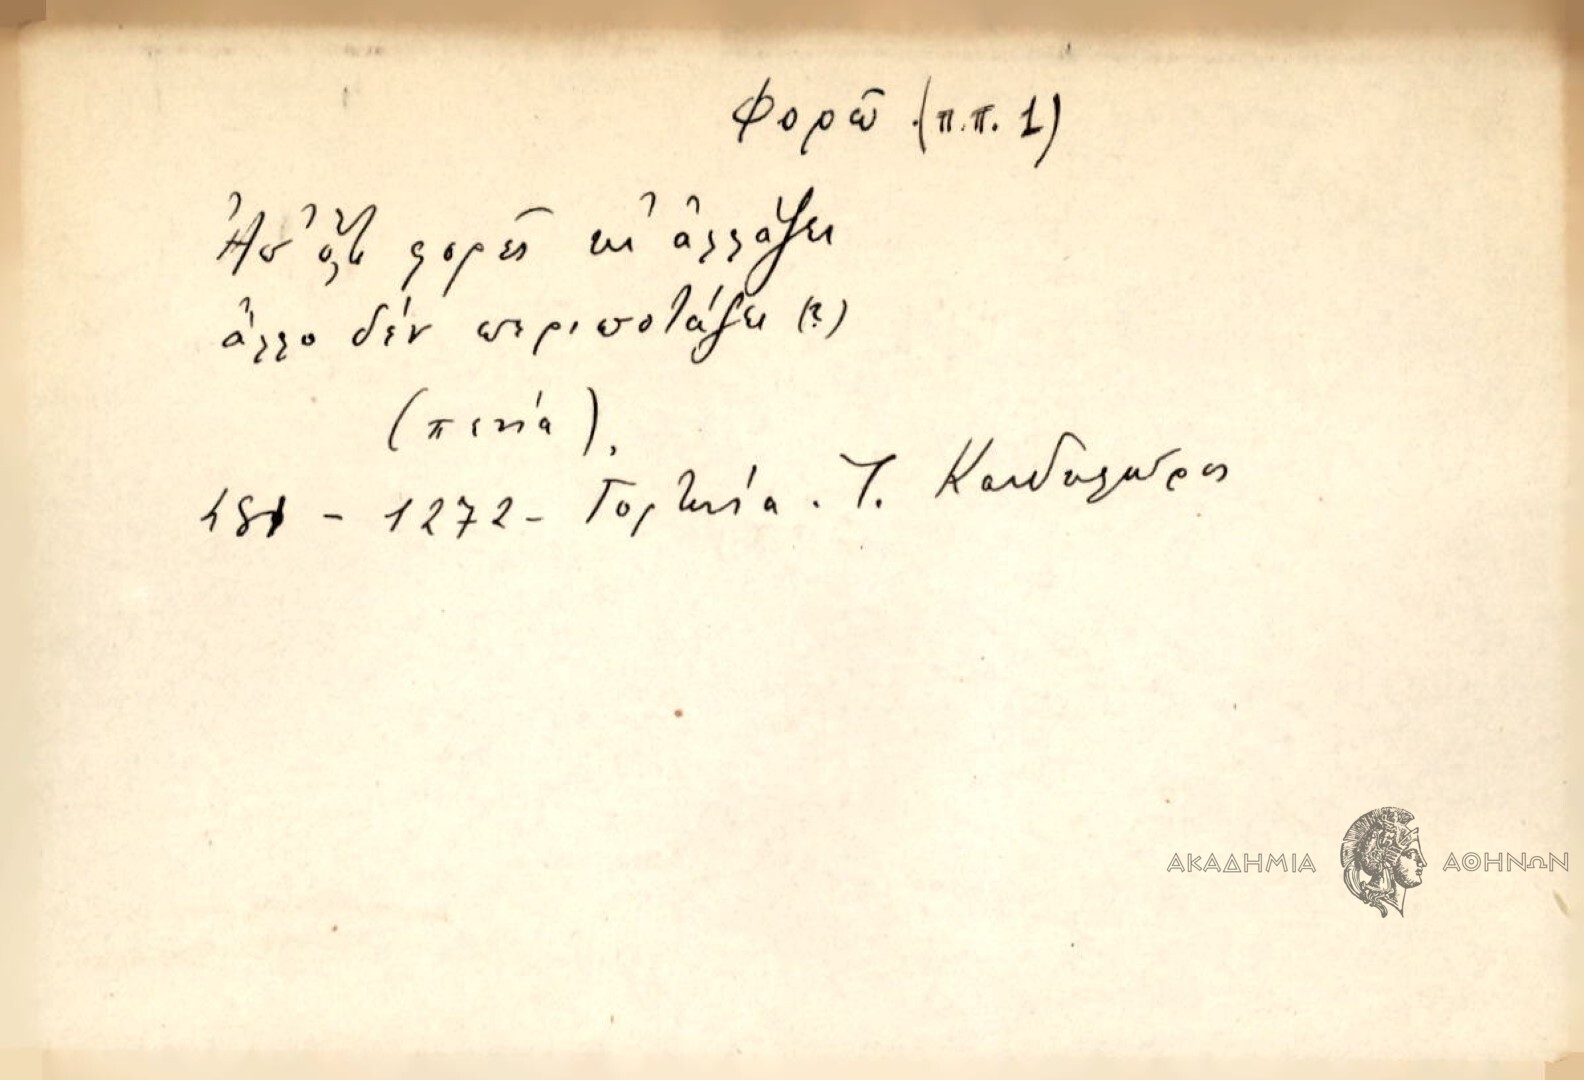 Φορῶ (π.π. 1)
Ἀπ' ὅτι φορεῖ κι' ἀλλάζει
ἄλλο δὲν περιποτάζει (?)
(πενία).
- 1272 - Γορτυνία. Τ. Κανδηλώρος
ΑΚΑΔΗΜΙΑ ΑΘΗΝΩΝ